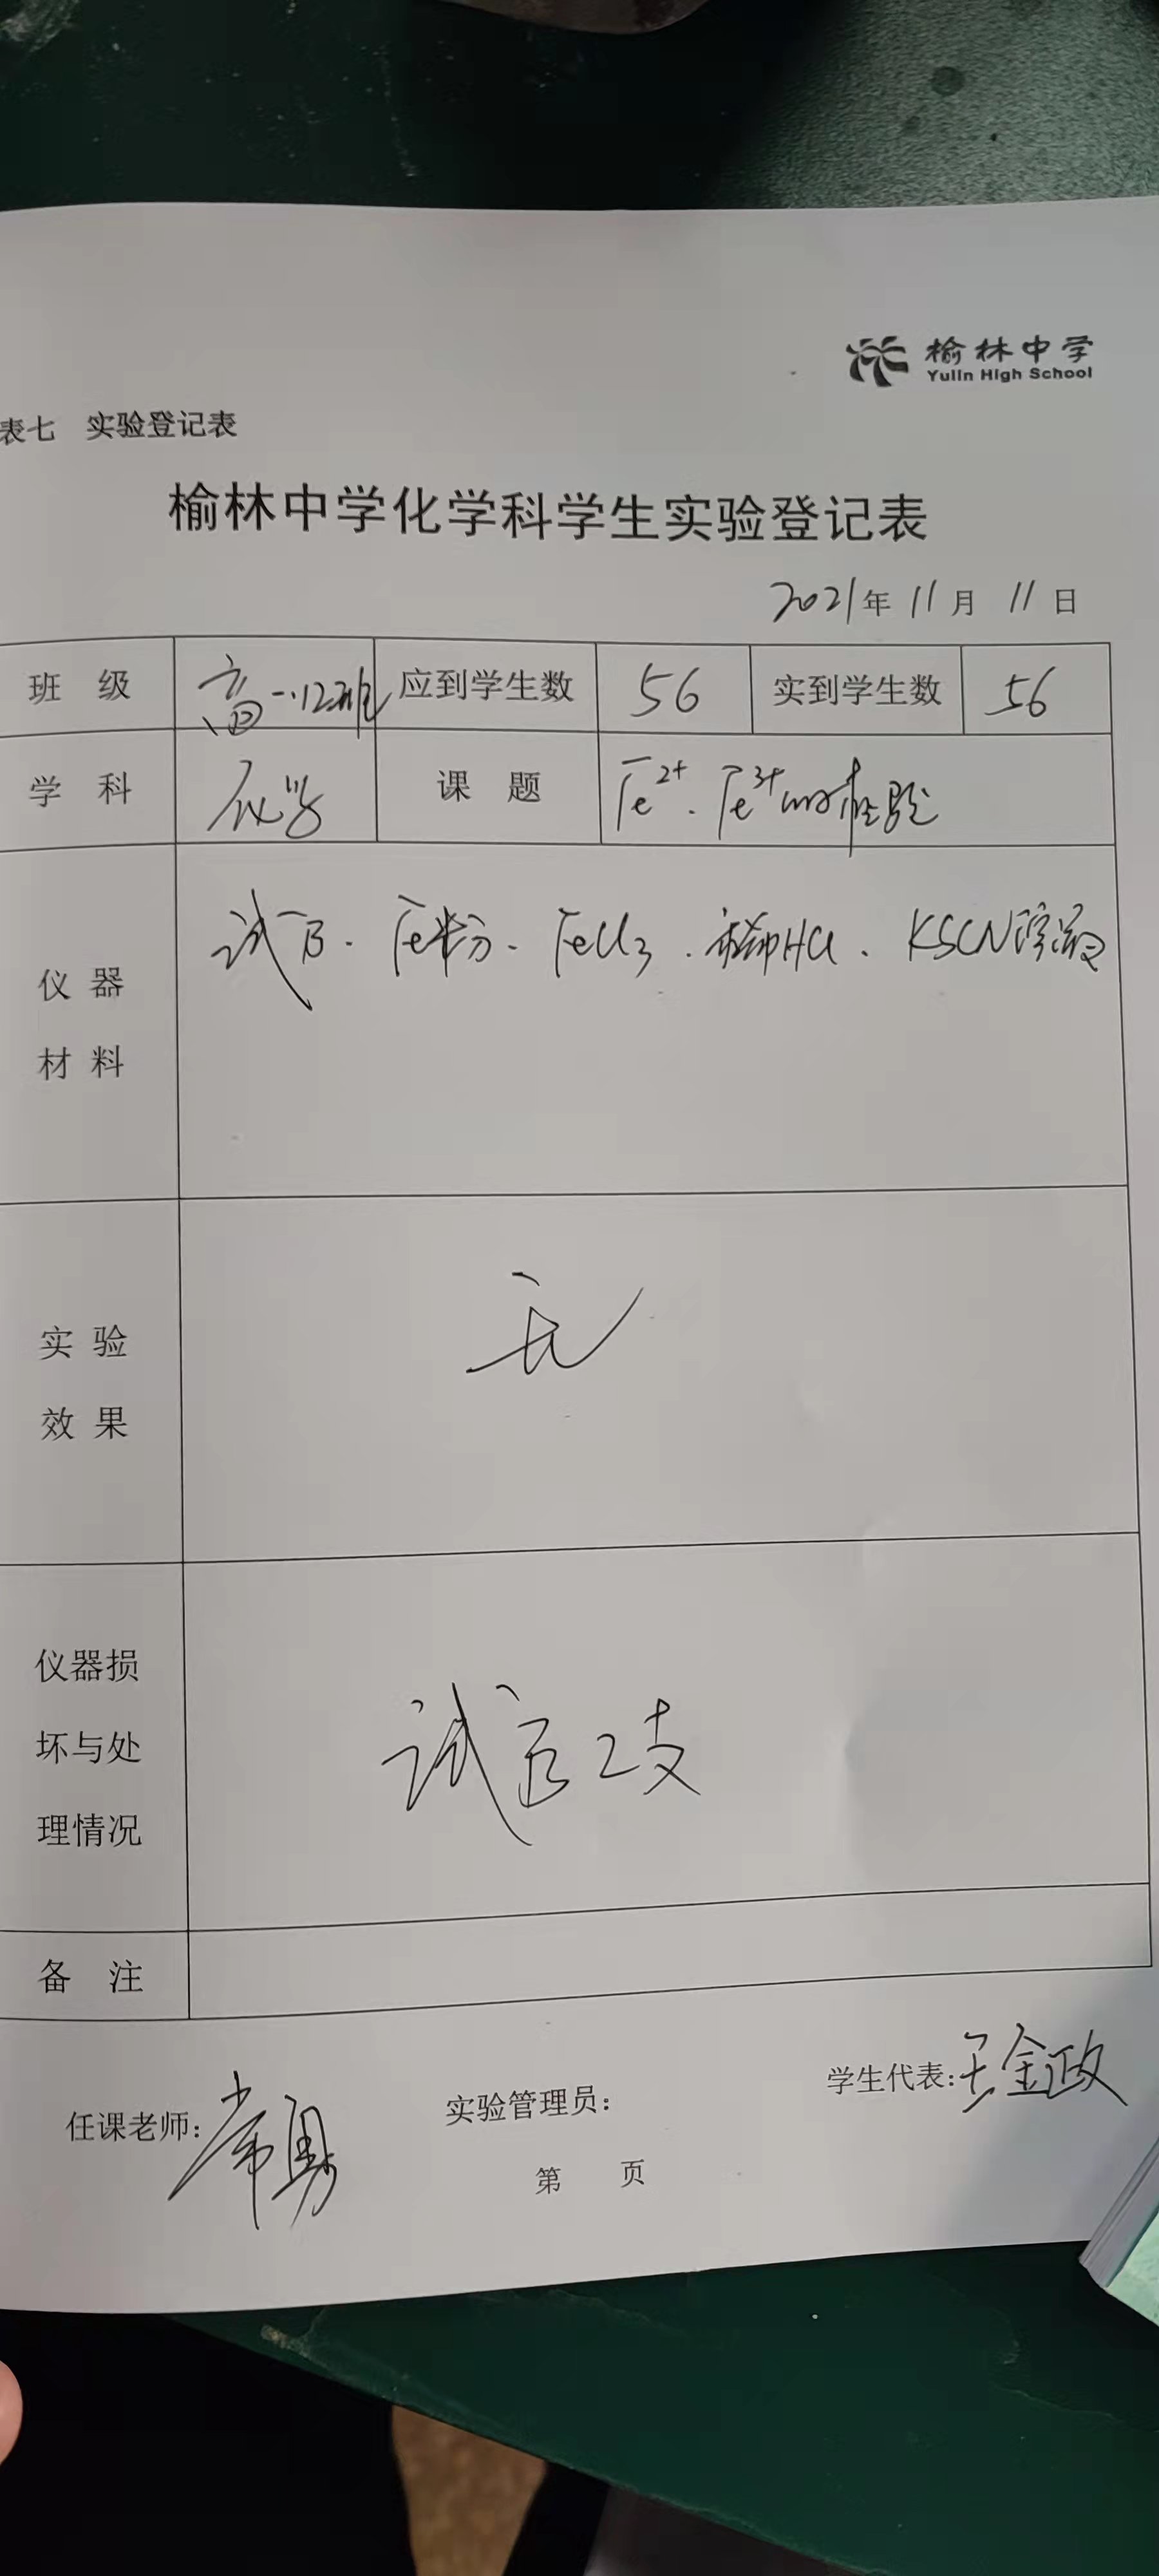 榆林中学
Yulin High School
表七 实验登记表
榆林中学化学科学生实验登记表
2021年 11月 11日
班 级 高一.12班 应到学生数 56 实到学生数 56
学 科 化学 课 题 Fe2+、Fe3+的检验
仪器材料 试管、Fe粉、FeCl3、稀HCl、KSCN溶液
实验效果
仪器损坏与处理情况 试管2支
备 注
任课老师：常勇 实验管理员： 学生代表：王金政
第 页